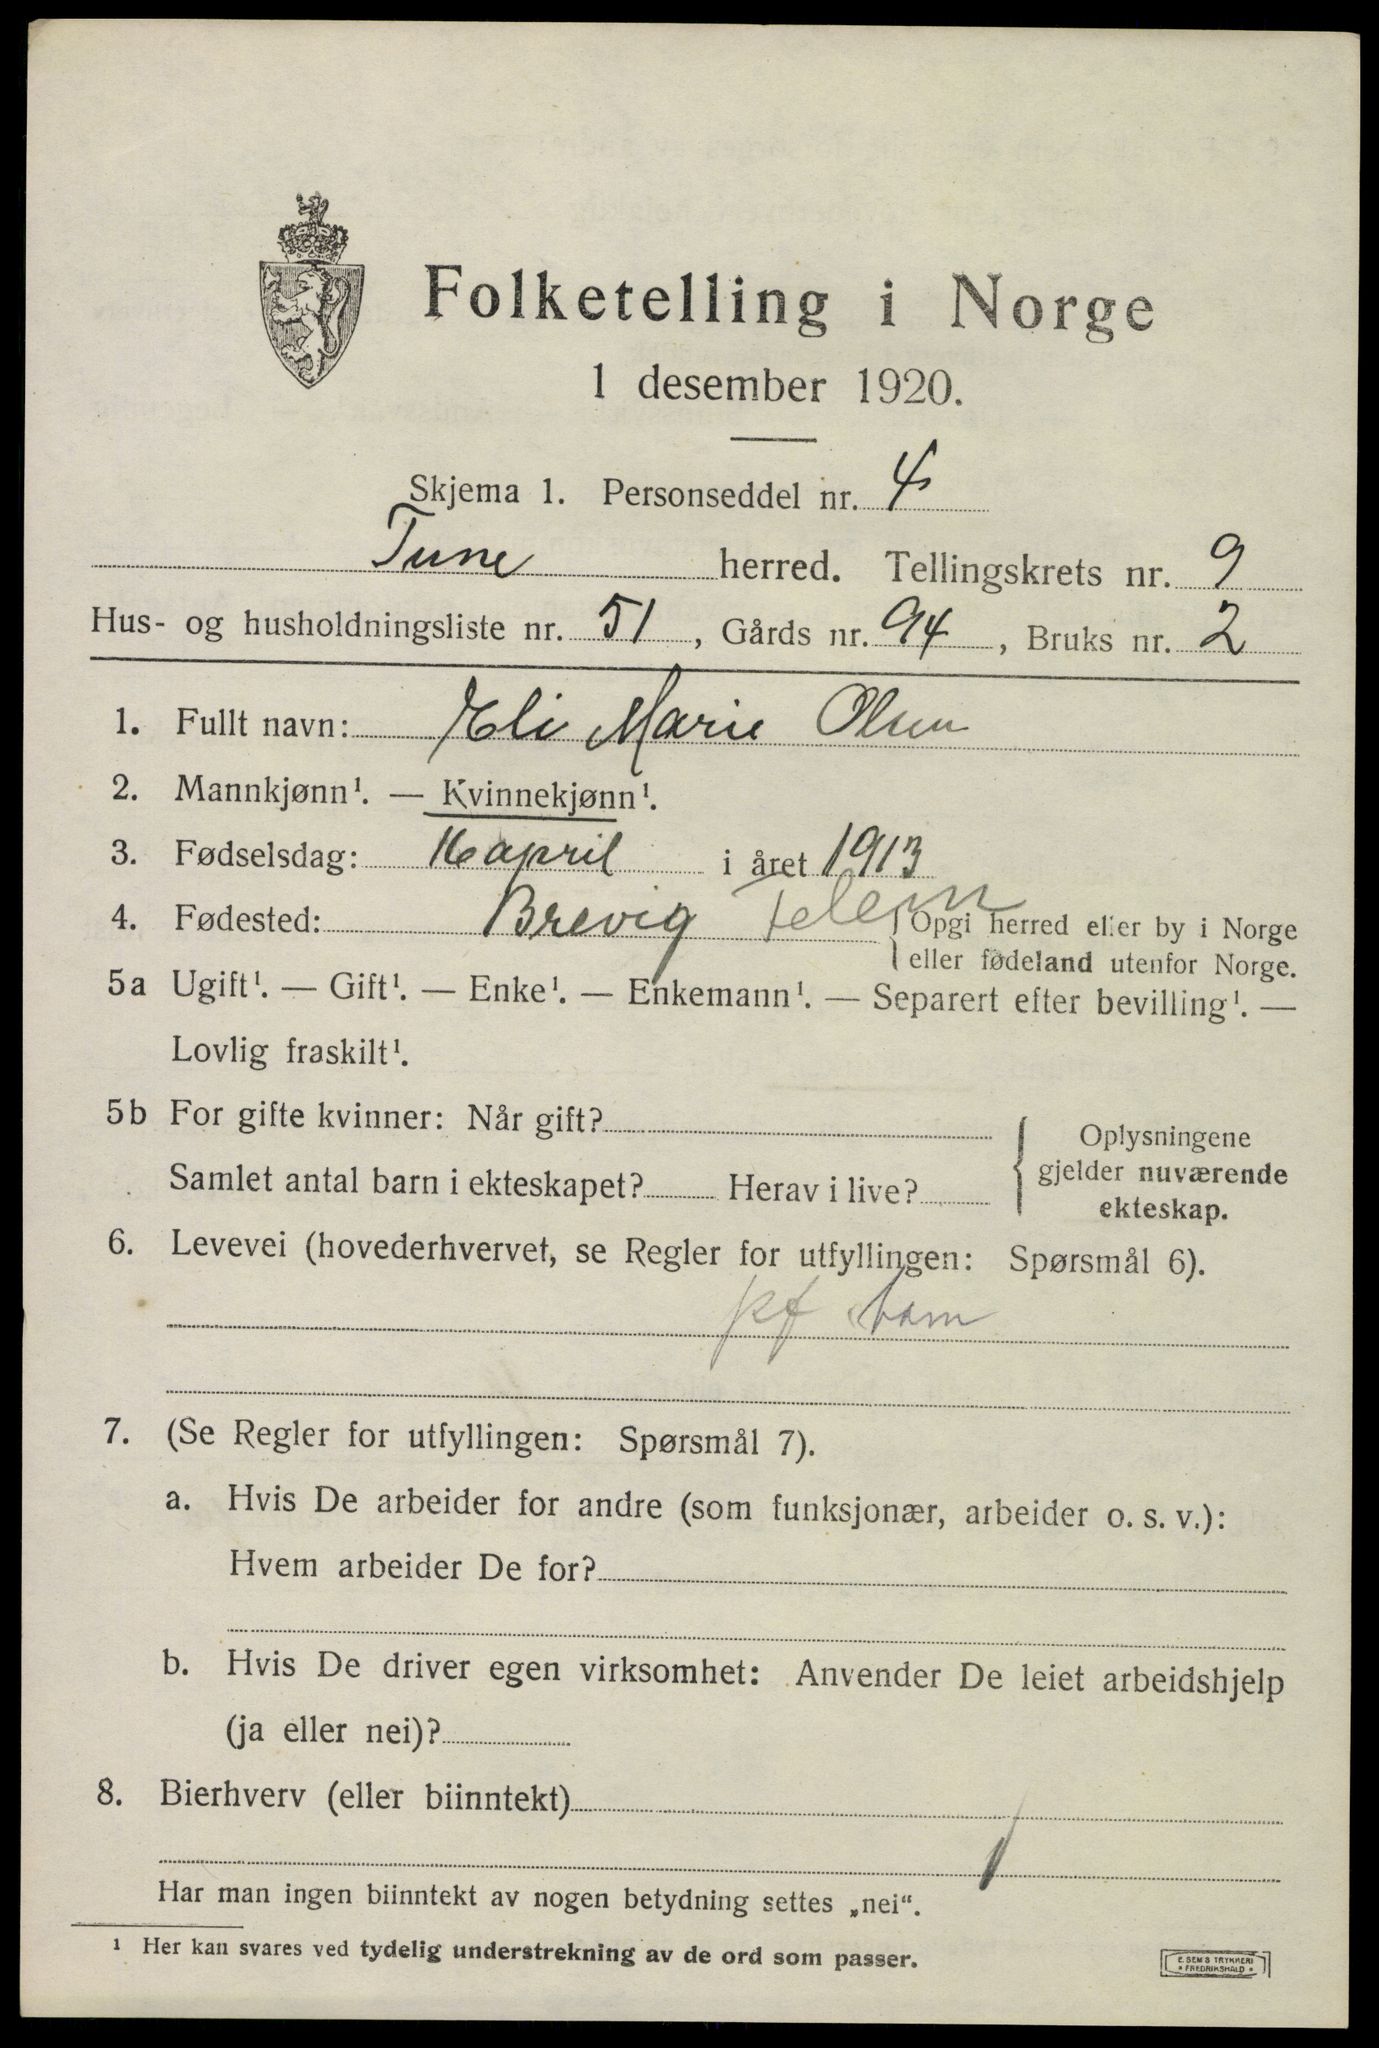 Folketelling i Norge
1 desember 1920.
Skjema 1. Personseddel nr. 4
Tune herred. Tellingskrets nr. 9
Hus- og husholdningsliste nr. 51, Gårds nr. 94, Bruks nr. 2
1. Fullt navn: Eli Marie Olsen
2. Mannkjønn¹. — Kvinnekjønn¹.
3. Fødselsdag: 16 april i året 1913
4. Fødested: Brevig Telem {Opgi herred eller by i Norge
eller fødeland utenfor Norge.
5a Ugift¹. — Gift¹. — Enke¹. — Enkemann¹. — Separert efter bevilling¹. —
Lovlig fraskilt¹.
5b For gifte kvinner: Når gift?
Samlet antal barn i ekteskapet? Herav i live?
{Oplysningene
gjelder nuværende
ekteskap.
6. Levevei (hovederhvervet, se Regler for utfyllingen: Spørsmål 6).
pf barn
7. (Se Regler for utfyllingen: Spørsmål 7).
a. Hvis De arbeider for andre (som funksjonær, arbeider o. s. v.):
Hvem arbeider De for?
b. Hvis De driver egen virksomhet: Anvender De leiet arbeidshjelp
(ja eller nei)?
8. Bierhverv (eller biinntekt)
Har man ingen biinntekt av nogen betydning settes „nei“.
¹ Her kan svares ved tydelig understrekning av de ord som passer.
E. SEM'S TRYKKERI
* FREDRIKSHALD *